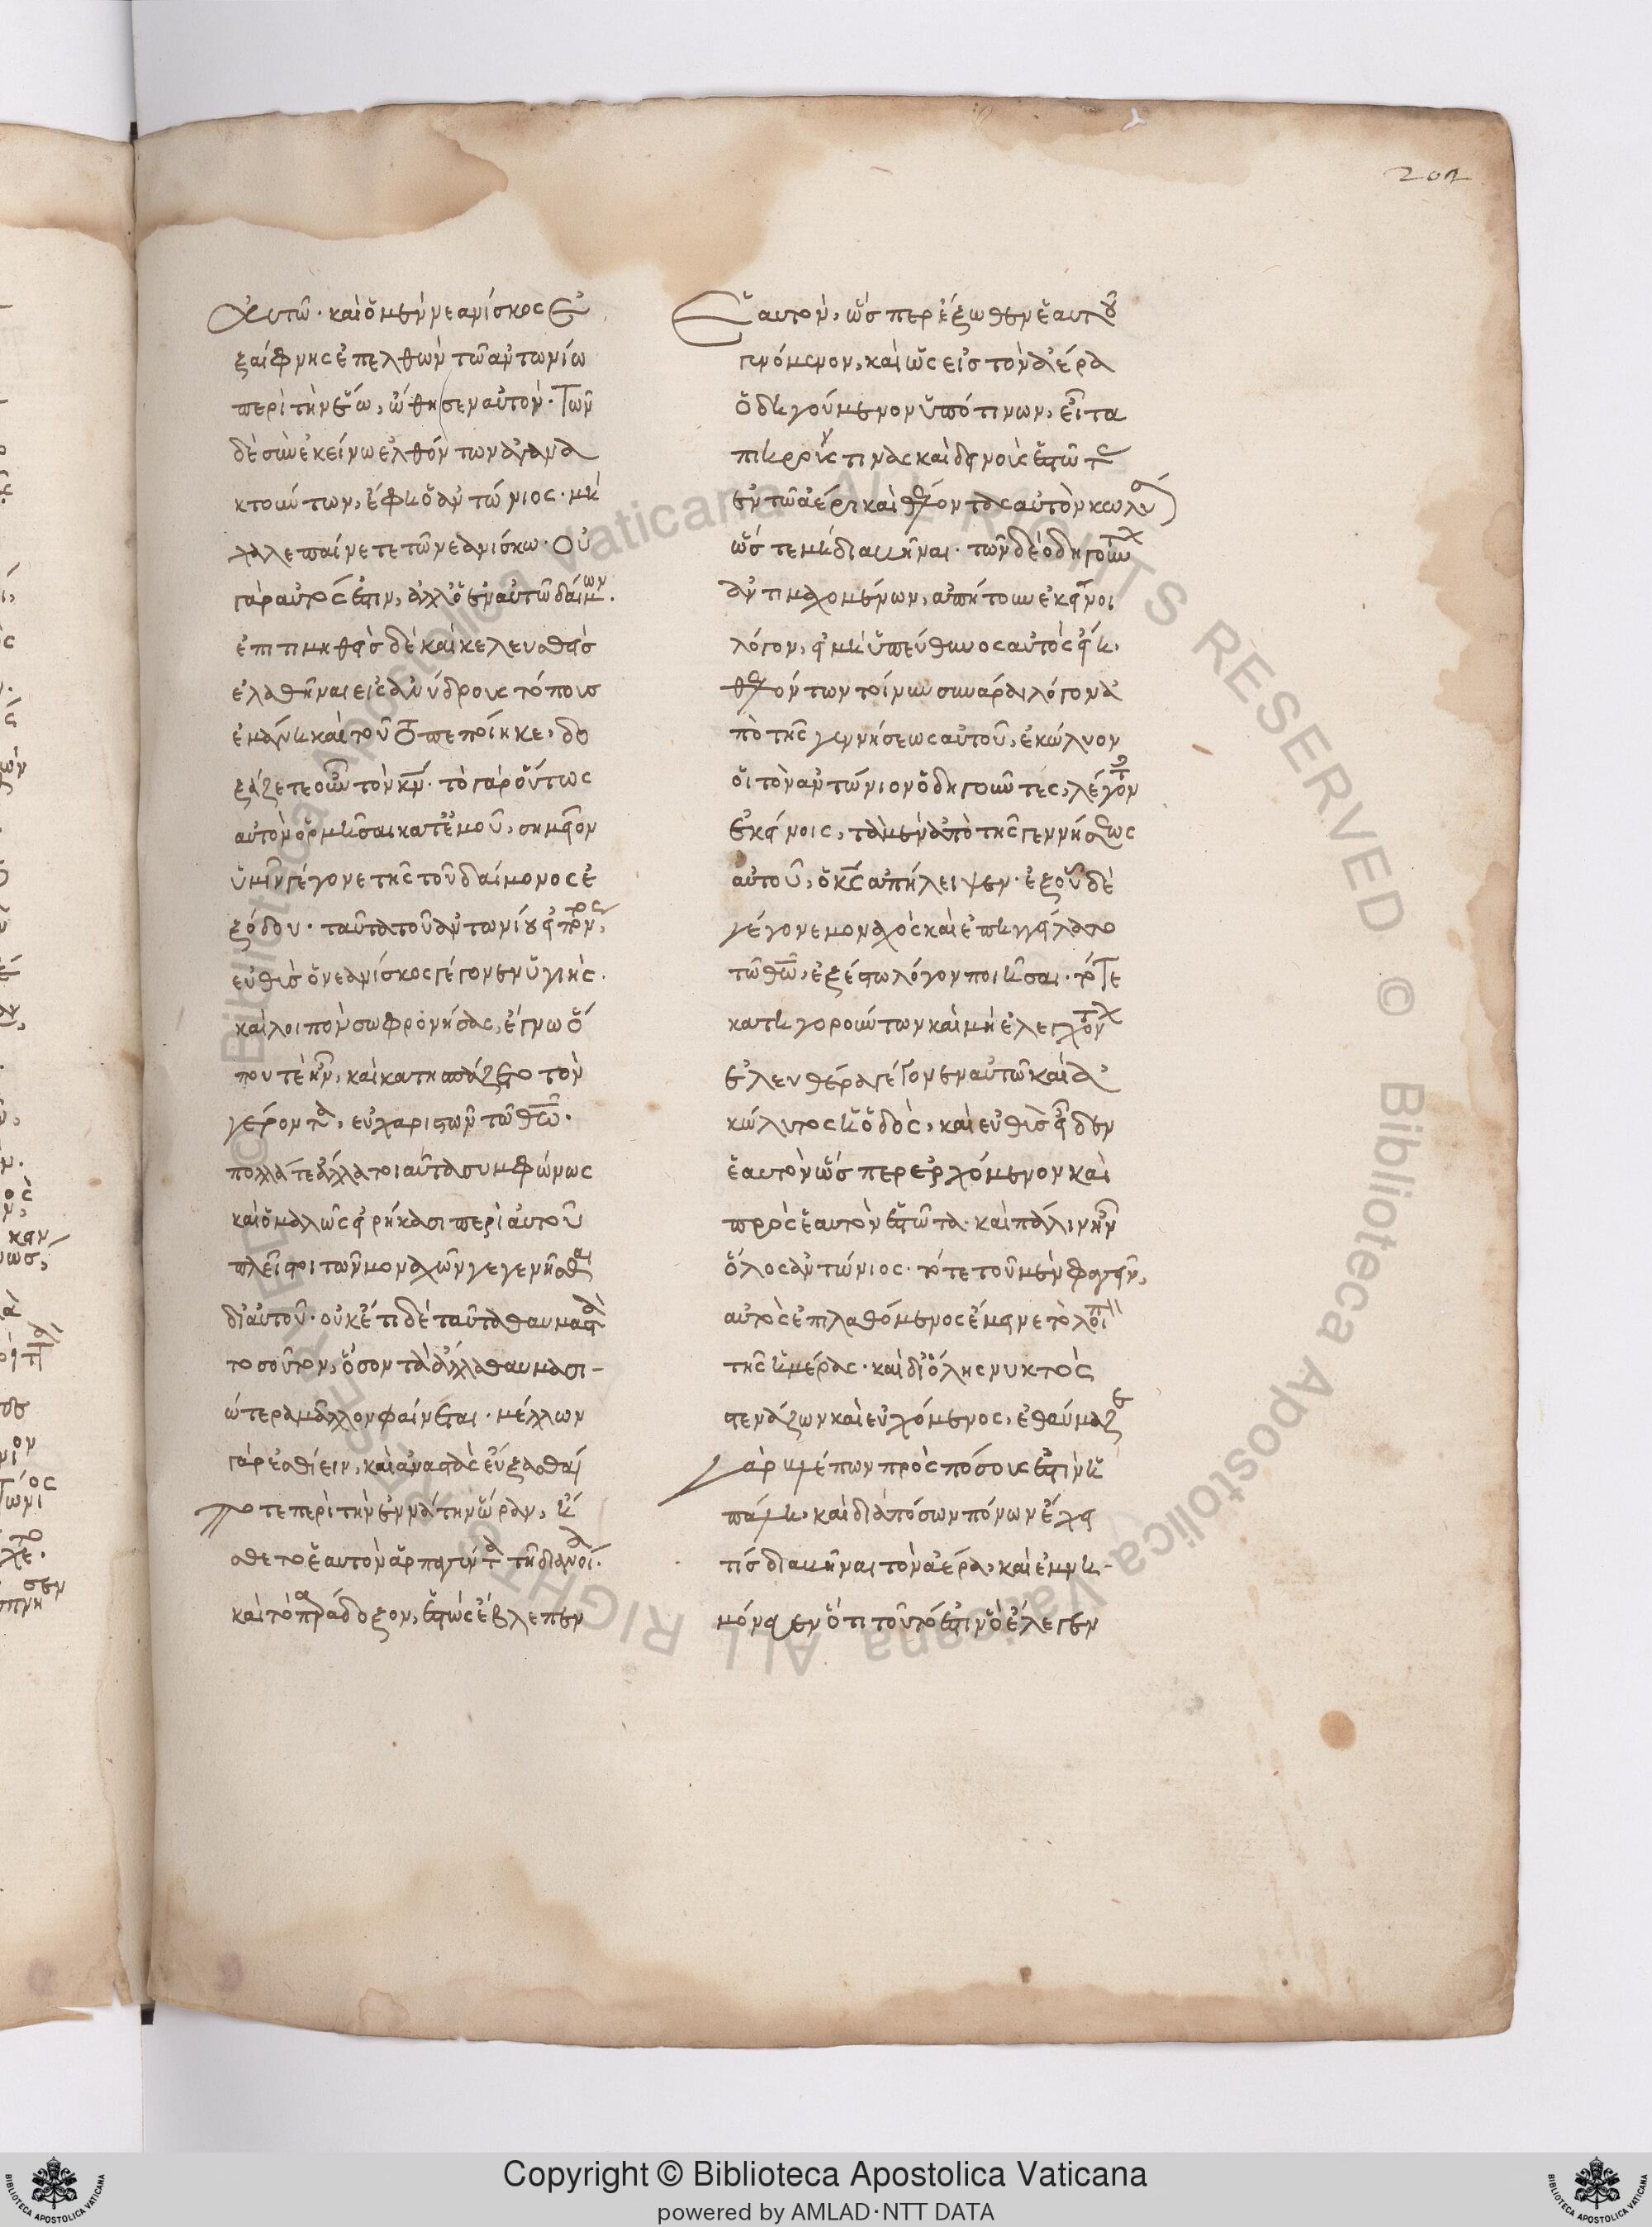 201
αυτῶ· καὶ ὁ μὲν νεανίσκος ἐ
ξαίφνης ἐπελθὼν τῶ ἀντωνίω
περὶ τὴν ἕω, ὤθησεν αὐτόν· Τῶν
δὲ σὺν ἐκείνω ἐλθόντων ἀγανα
κτούντων, ἔφη ὁ ἀντώνιος· μὴ
χαλεπαίνετε τῶ νεανίσκω· Οὐ
γὰρ αὐτός ἐστιν, ἀλλ' ὁ ἐν αὐτῶ δαίμων.
ἐπιτιμηθεὶς δὲ καὶ κελευσθεὶς
ἐλαθῆναι εἰς ἀνύδρους τόπους
ἐμάνη καὶ τοῦτο πεποίηκε, δο
ξάζετε οὖν τὸν κν̄· τὸ γὰρ οὕτως
αὐτὸν ὁρμῆσαι κατ' ἐμοῦ, σημεῖον
ὑμῖν γέγονε τῆς τοῦ δαίμονος ἐ
ξόδου· ταῦτα τοῦ ἀντωνίου εἰπόντος,
εὐθὺς ὁ νεανίσκος γέγονεν ὑγιής.
καὶ λοιπὸν σωφρονήσας, ἔγνω ὅ
που τὲ ἦν, καὶ κατησπάζετο τὸν
γέροντα, εὐχαριστῶν τῶ θω̄.
πολλὰ τε ἄλλα τοιαῦτα συμφώνως
καὶ ὁμαλῶς εἰρήκασι περὶ αὐτοῦ
πλεῖστοι τῶν μοναχῶν γεγενῆσθαι
δι' αὐτοῦ· οὐκ ἔτι δὲ ταῦτα θαυμαστὰ
τοσοῦτον, ὅσον τὰ ἄλλα θαυμασι-
ώτερα μᾶλλον φαίνεται· μέλλων
γὰρ ἐσθίειν, καὶ ἀναστὰς εὔξασθαί
ποτε περὶ τὴν ἐννάτην ὥραν, ἤ
σθετο ἑαυτὸν ἁρπαγέντα τῆ διανοία.
καὶ τὸ παράδοξον, ἑστὼς ἔβλεπεν
ἑαυτόν, ὥσπερ ἔξωθεν ἑαυτοῦ
γινόμενον, καὶ ὡς εἰς τὸν ἀέρα
ὁδηγούμενον ὑπό τινων, εἶτα
πικρούς τινας καὶ δεινοὺς ἑστῶτας
ἐν τῶ ἀέρι καὶ θέλοντας αὐτὸν κωλῦσαι
ὥστε μὴ διαβῆναι· τῶν δὲ ὁδηγούντων
ἀντιμαχομένων, ἀπήτουν ἐκεῖνοι
λόγον, εἰ μὴ ὑπεύθυνος αὐτοῖς εἴη,
θελόντων τοίνυν συνάραι λόγον ἀ
πὸ τῆς γεννήσεως αὐτοῦ, ἐκώλυον
οἱ τὸν ἀντώνιον ὁδηγοῦντες, λέγοντες
ἐκείνοις, τὰ μὲν ἀπὸ τῆς γεννήσεως
αὐτοῦ, ὁ κς̄ ἀπήλειψεν· ἐξ οὗ δὲ
γέγονε μοναχὸς καὶ ἐπηγγείλατο
τῶ θω̄, ἐξέστω λόγον ποιῆσαι· τότε
κατηγορούντων καὶ μὴ ἐλεγχόντων
ἐλευθέρα γέγονεν αὐτῶ καὶ ἀ
κώλυτος ἡ ὁδὸς, καὶ εὐθὺς εἶδεν
ἑαυτὸν ὥσπερ ἐρχόμενον καὶ
πρὸς ἑαυτὸν ἑστῶτα· καὶ πάλιν ἦν
ὅλος ἀντώνιος· τότε τοῦ μὲν φαγεῖν,
αὐτὸς ἐπιλαθόμενος ἔμεινε τὸ λοιπὸν
τῆς ἡμέρας· καὶ δι' ὅλης νυκτὸς
στενάζων καὶ εὐχόμενος, ἐθαύμαζε
γὰρ βλέπων πρὸς πόσους ἐστὶν ἡ
πάλη, καὶ διὰ πόσων πόνων ἔχει
τίς διαβῆναι τὸν ἀέρα, καὶ ἐμνη-
μόνευεν ὅτι τοῦτό ἐστιν ὃ ἔλεγεν